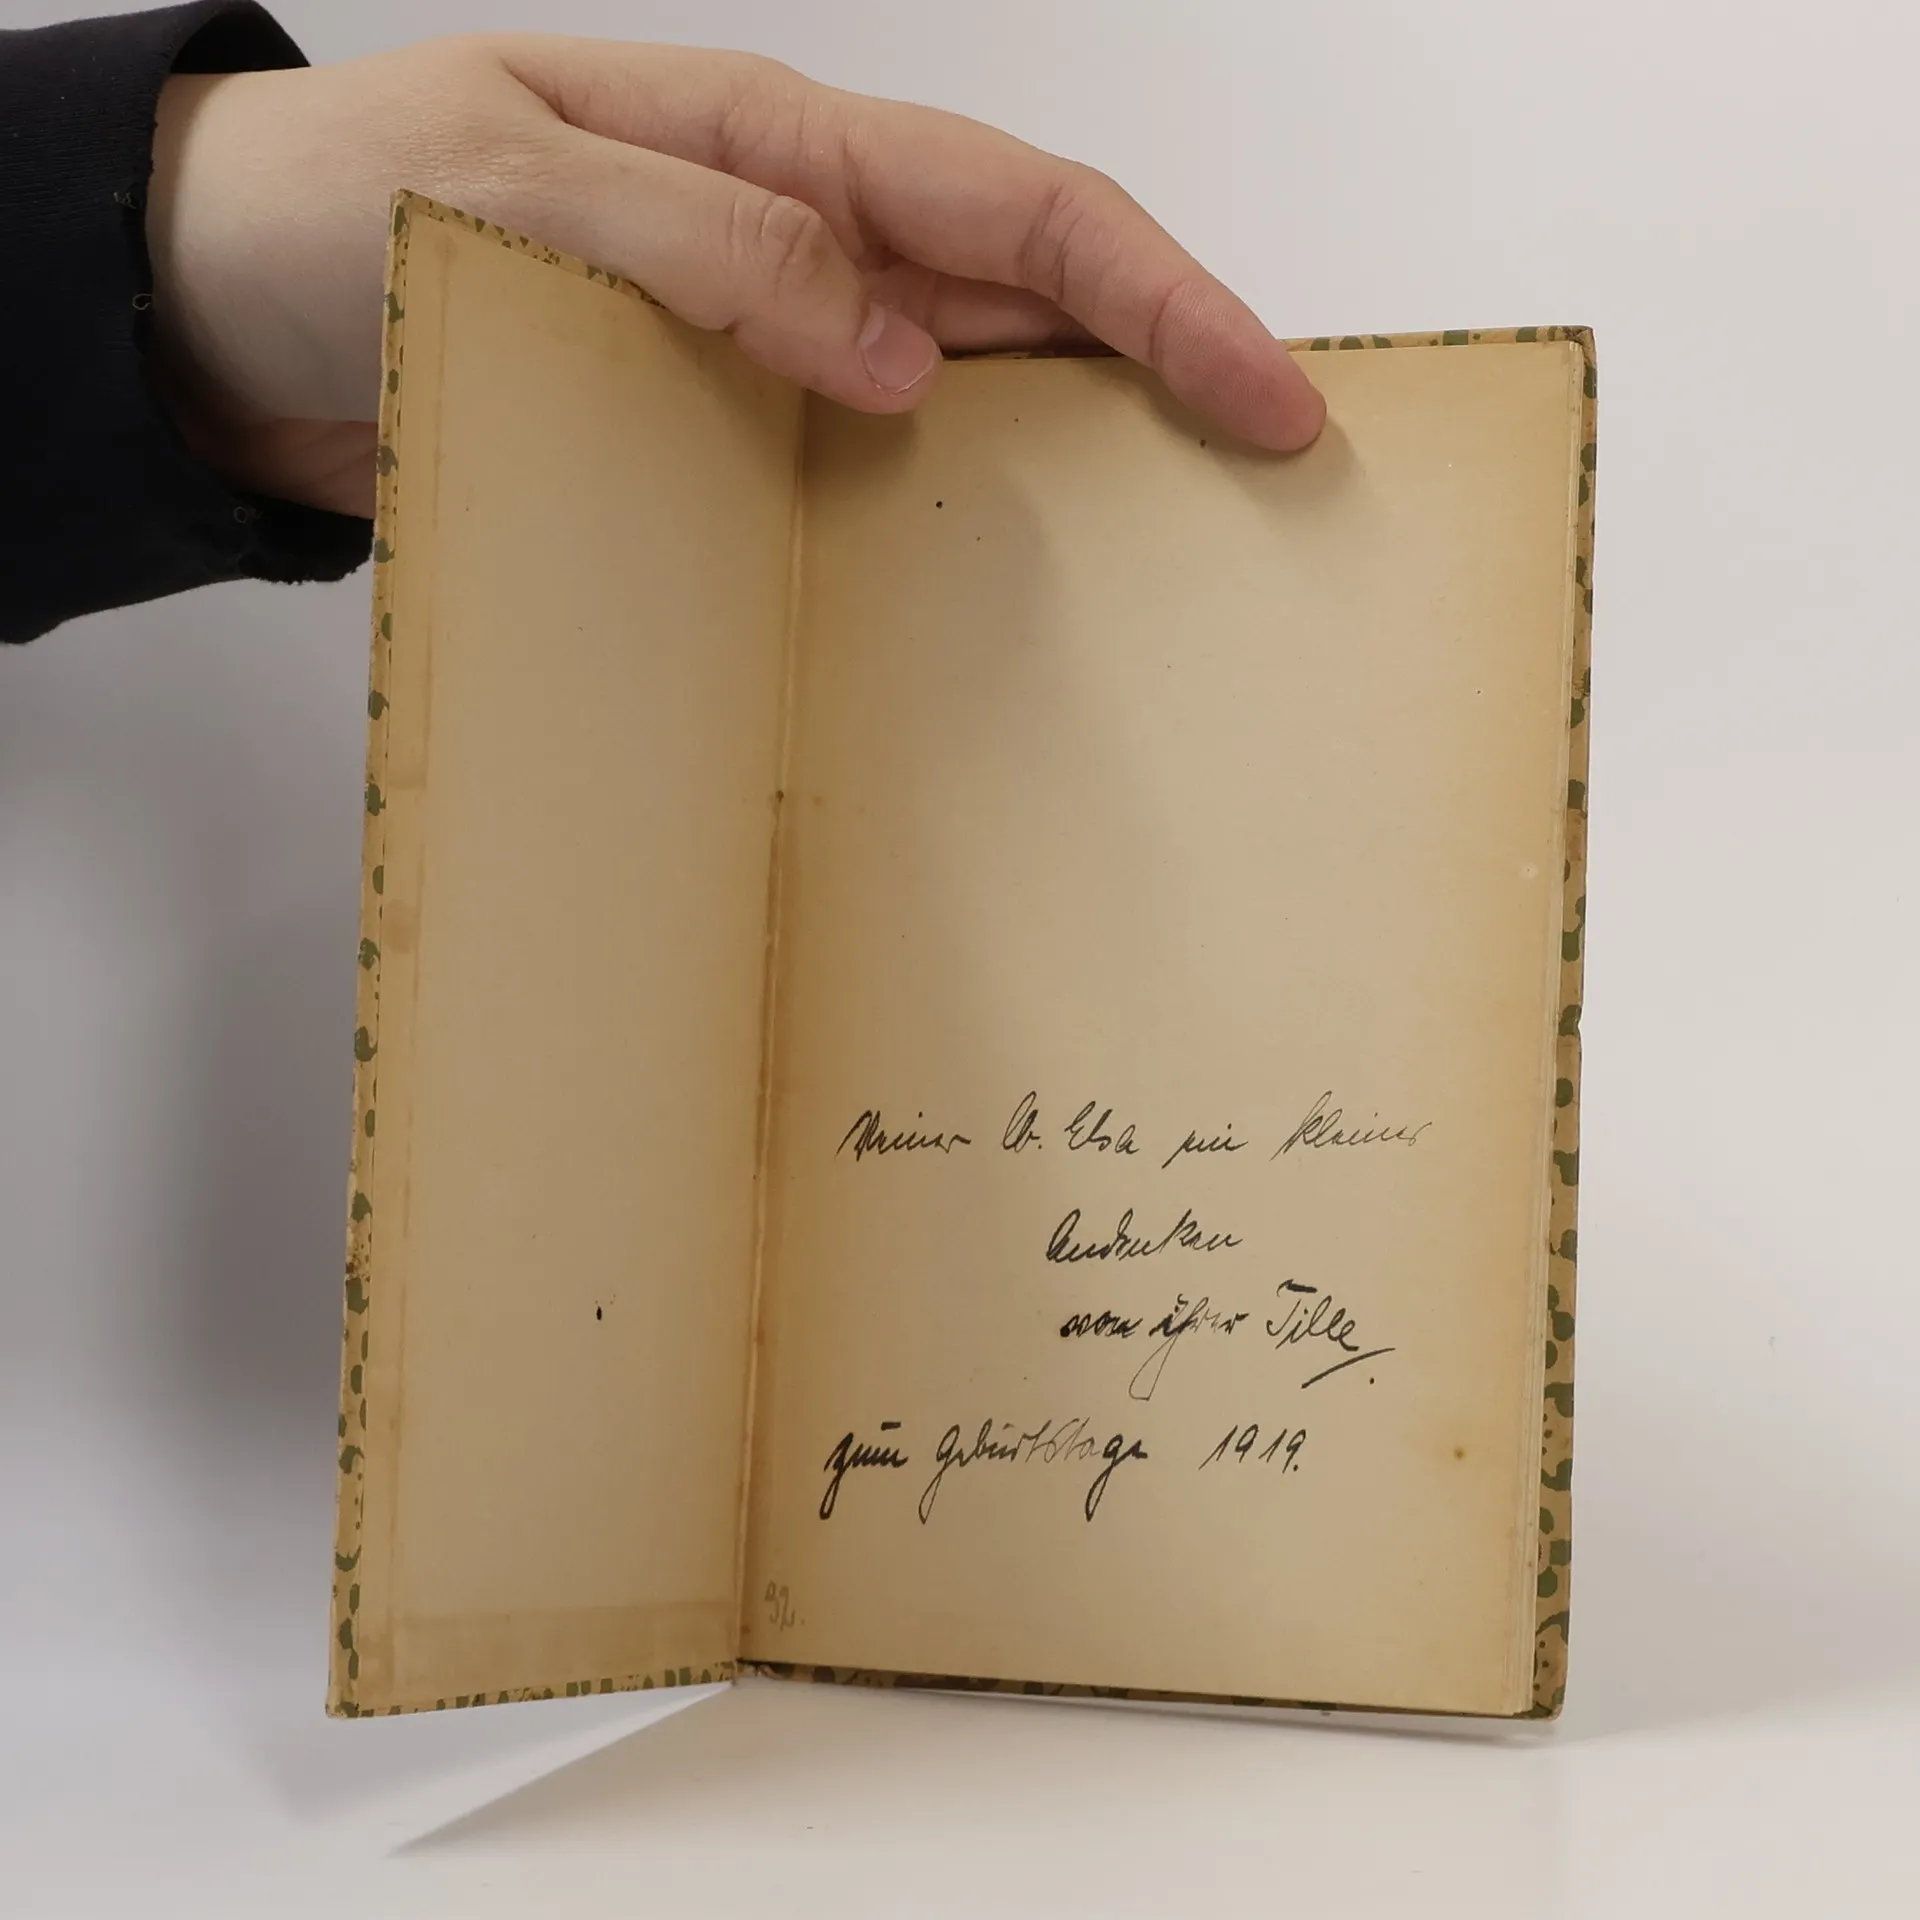 Meiner lb. Elsa ein kleines
Andenken
von ihrer Tille.
zum Geburtstage 1919.
92.